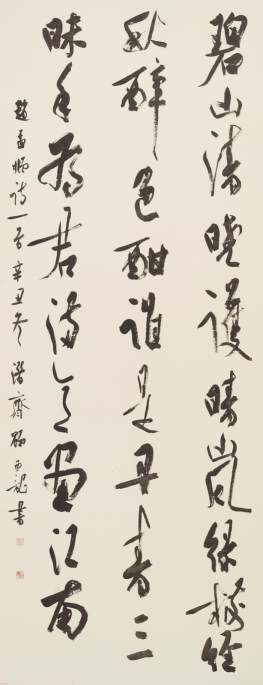 碧山清曉護晴嵐綠樹經
秋醉色酣誰是丹青三
昧手為君滿意畫江南
趙孟頫詩一首辛丑冬潛齋書